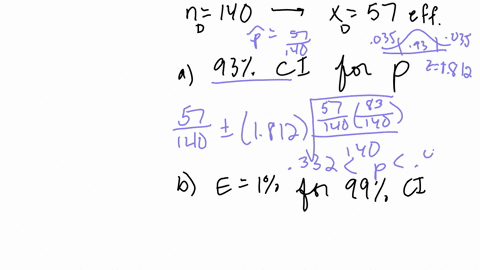 n_D = 140 → x_D = 57 eff.
p̂ = 57/140
.035 .93 .035
a) 93% CI for p
z=1.812
57/140 ± (1.812) √(57/140 (83/140) / 140)
.332 < p < .
b) E = 1% for 99% CI